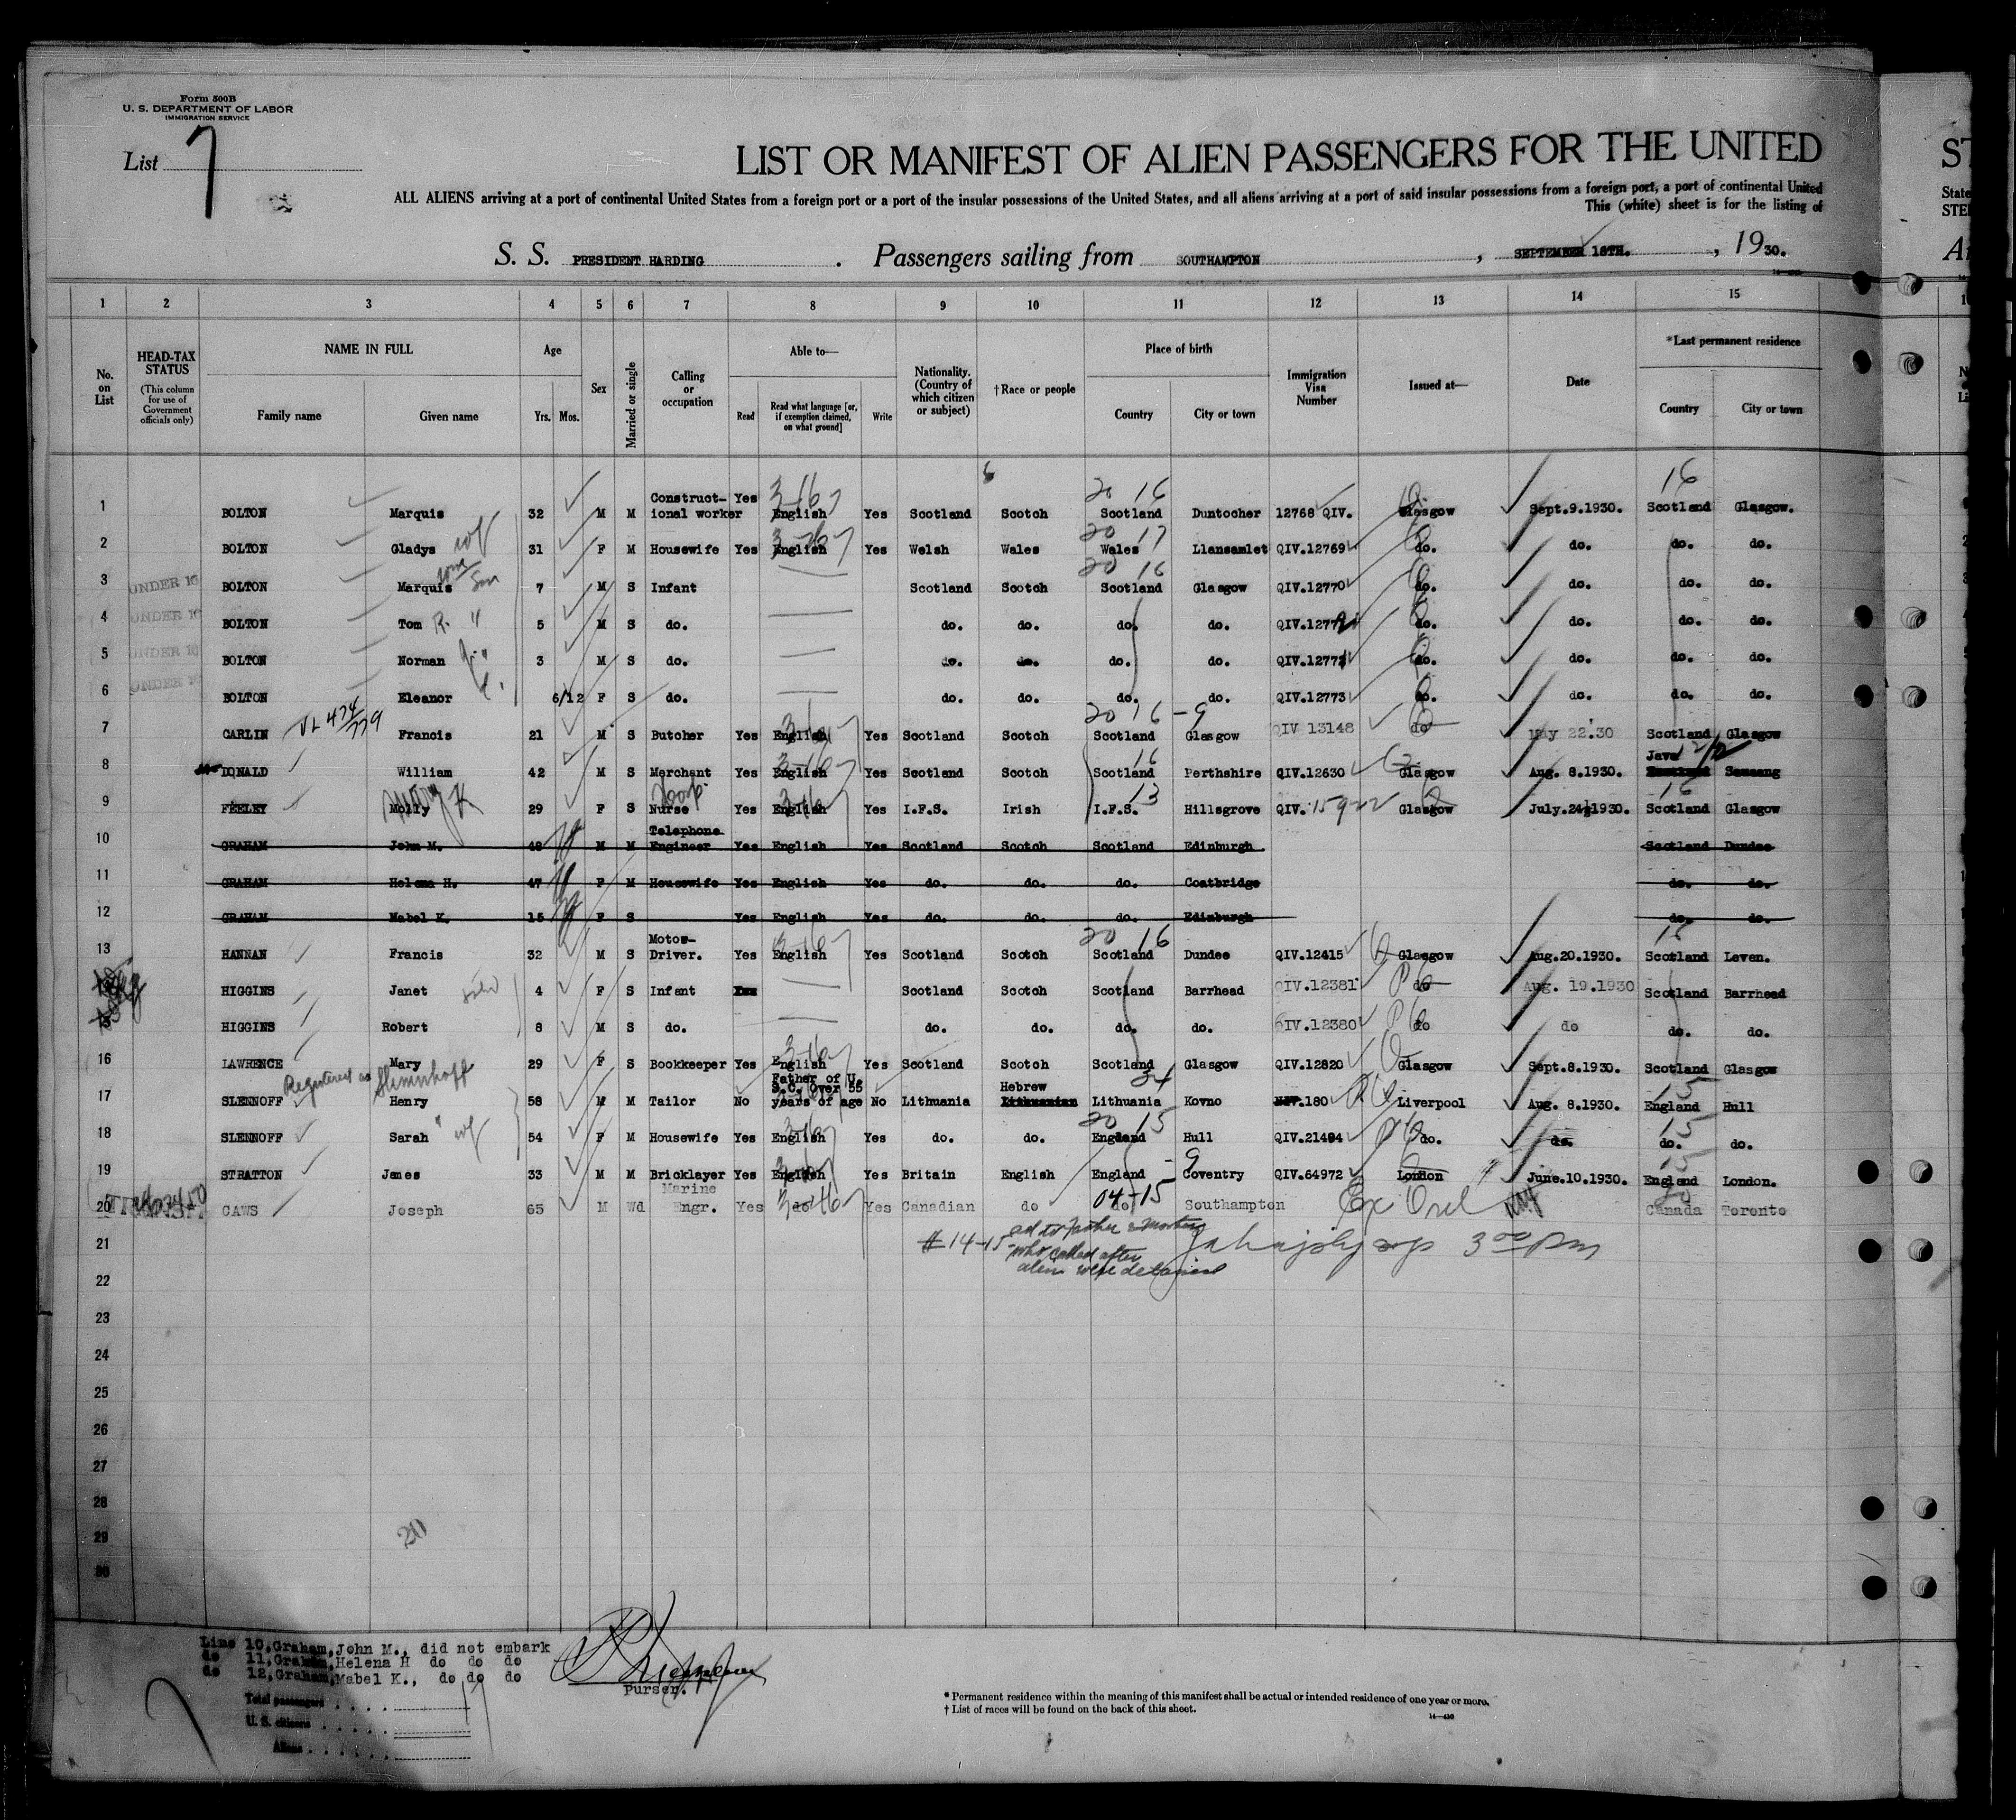 Form 500B
U. S. DEPARTMENT OF LABOR
IMMIGRATION SERVICE
List 7
LIST OR MANIFEST OF ALIEN PASSENGERS FOR THE UNITED
ALL ALIENS arriving at a port of continental United States from a foreign port or a port of the insular possessions of the United States, and all aliens arriving at a port of said insular possessions from a foreign port, a port of continental United
This (white) sheet is for the listing of
S. S. PRESIDENT HARDING . Passengers sailing from SOUTHAMPTON , SEPTEMBER 18TH. , 1930.
1 2 3 4 5 6 7 8 9 10 11 12 13 14 15
No. on List
HEAD-TAX STATUS (This column for use of Government officials only)
NAME IN FULL Family name Given name
Age Yrs. Mos.
Sex
Married or single
Calling or occupation
Able to— Read Read what language [or, if exemption claimed, on what ground] Write
Nationality. (Country of which citizen or subject)
†Race or people
Place of birth Country City or town
Immigration Visa Number
Issued at—
Date
*Last permanent residence Country City or town
1 BOLTON Marquis 32 M M Construct-ional worker Yes English Yes Scotland Scotch Scotland Duntocher 12768 QIV. Glasgow Sept.9.1930. Scotland Glasgow.
2 BOLTON Gladys wf 31 F M Housewife Yes English Yes Welsh Wales Wales Llansamlet QIV.12769 do. do. do. do.
3 UNDER 16 BOLTON Marquis Son 7 M S Infant Scotland Scotch Scotland Glasgow QIV.12770 do. do. do. do.
4 UNDER 16 BOLTON Tom R. " 5 M S do. do. do. do. do. QIV.12772 do. do. do. do.
5 UNDER 16 BOLTON Norman 3 M S do. do. do. do. do. QIV.12771 do. do. do. do.
6 UNDER 16 BOLTON Eleanor 6/12 F S do. do. do. do. do. QIV.12773 do. do. do. do.
7 CARLIN Francis 21 M S Butcher Yes English Yes Scotland Scotch Scotland Glasgow QIV 13148 do May 22.30 Scotland Glasgow
8 DONALD William 42 M S Merchant Yes English Yes Scotland Scotch Scotland Perthshire QIV.12630 Glasgow Aug. 8.1930. Java Samaang
9 FEELEY Molly K 29 F S Nurse Yes English Yes I.F.S. Irish I.F.S. Hillsgrove QIV. 15922 Glasgow July.24.1930. Scotland Glasgow
10 GRAHAM John M. 48 M M Telephone Engineer Yes English Yes Scotland Scotch Scotland Edinburgh Scotland Dundee
11 GRAHAM Helena H. 47 F M Housewife Yes English Yes do. do. do. Coatbridge do. do.
12 GRAHAM Mabel K. 15 F S Yes English Yes do. do. do. Edinburgh do. do.
13 HANNAN Francis 32 M S Motor-Driver. Yes English Yes Scotland Scotch Scotland Dundee QIV.12415 Glasgow Aug.20.1930. Scotland Leven.
HIGGINS Janet 4 F S Infant Scotland Scotch Scotland Barrhead QIV.12381 do Aug. 19.1930 Scotland Barrhead
15 HIGGINS Robert 8 M S do. do. do. do. do. QIV.12380 do do do. do.
16 LAWRENCE Mary 29 F S Bookkeeper Yes English Yes Scotland Scotch Scotland Glasgow QIV.12820 Glasgow Sept.8.1930. Scotland Glasgow
Registered as
17 SLENNOFF Henry 58 M M Tailor No Father of U. S.C. Over 55 years of age No Lithuania Hebrew Lithuanian Lithuania Kovno 180 Liverpool Aug. 8.1930. England Hull
18 SLENNOFF Sarah wf 54 F M Housewife Yes English Yes do. do. England Hull QIV.21494 do. do. do. do.
19 STRATTON James 33 M M Bricklayer Yes English Yes Britain English England Coventry QIV.64972 London June.10.1930. England London.
20 CAWS Joseph 65 M Wd Marine Engr. Yes do Yes Canadian do do Southampton Canada Toronto
21 # 14-15 ad to Father & Mother who called after aliens were detained 3 00 pm
22
23
24
25
26
27
28
29
30
20
Line 10,Graham,John M., did not embark
do 11,Graham,Helena H do do do
do 12,Graham,Mabel K., do do do
Purser.
Total passengers
U. S. citizens
Aliens
* Permanent residence within the meaning of this manifest shall be actual or intended residence of one year or more.
† List of races will be found on the back of this sheet.